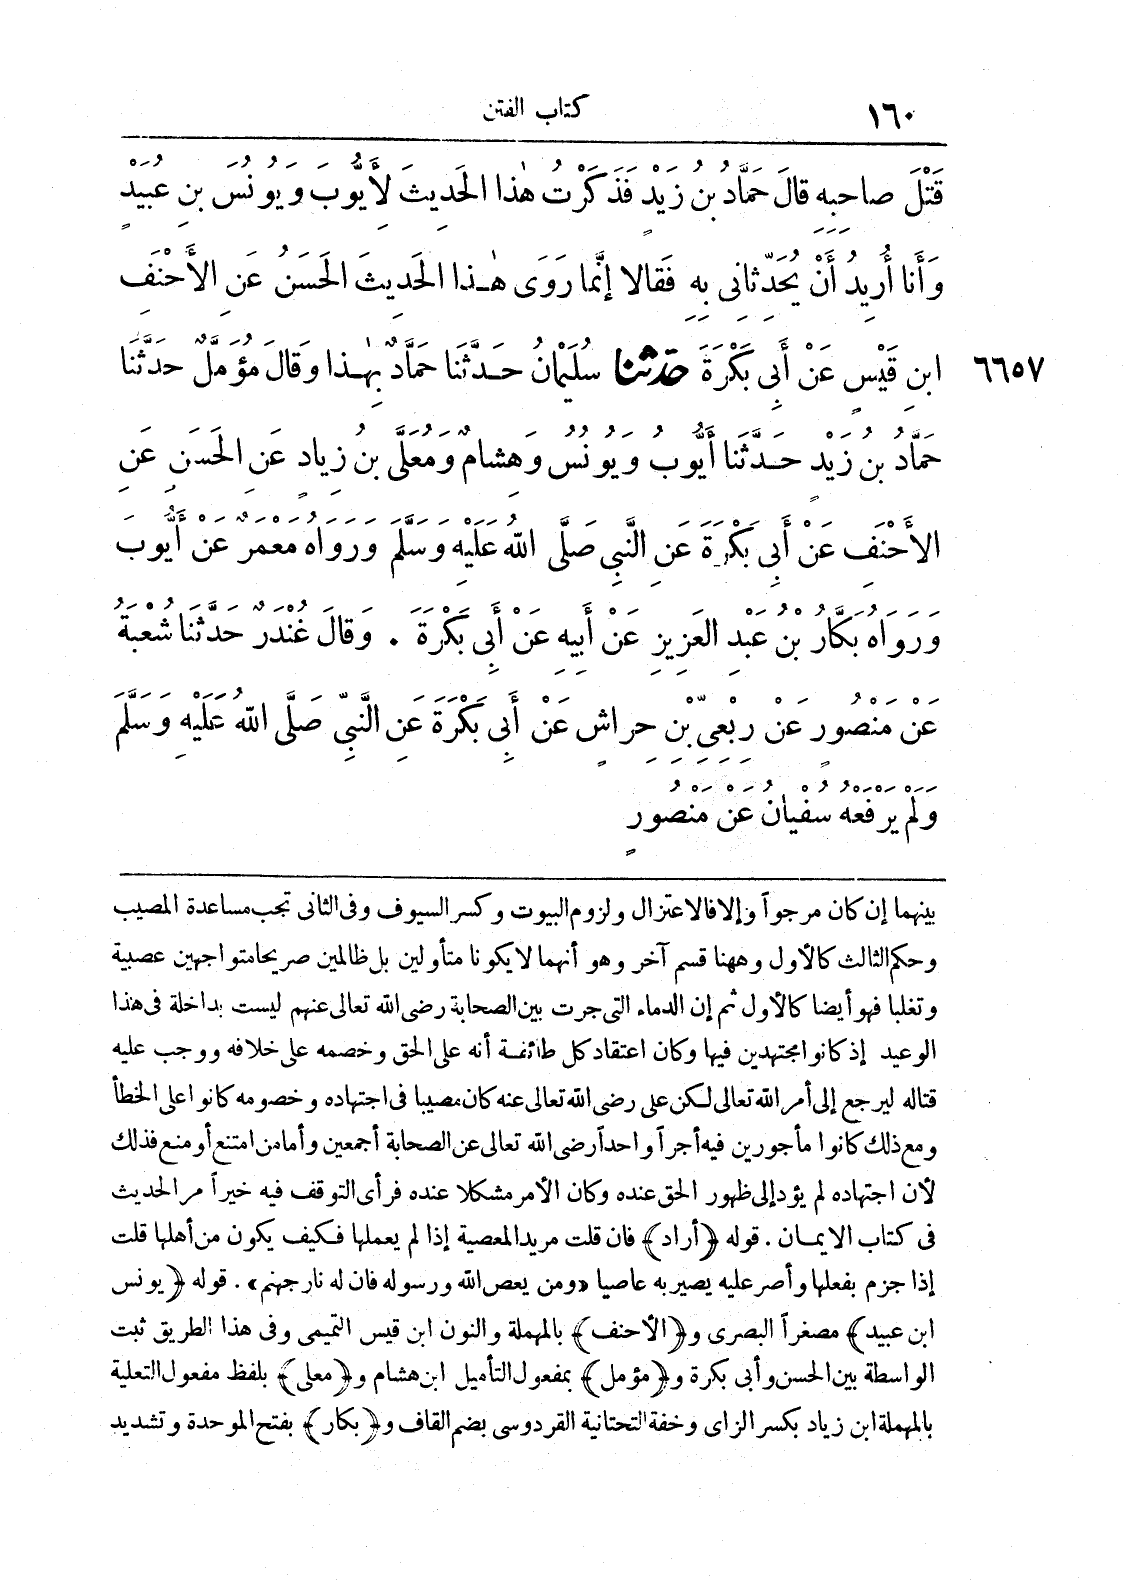 ١٦٠ كتاب الفتن
قَتْلَ صاحِبِهِ قالَ حَمَّادُ بنُ زَيْدٍ فَذَكَرْتُ هٰذا الحَدِيثَ لِأَيُّوبَ وَيُونُسَ بنِ عُبَيْدٍ
وَأَنا أُرِيدُ أَنْ يُحَدِّثانِي بِهِ فَقالا إِنَّما رَوَى هٰذا الحَدِيثَ الحَسَنُ عَنِ الأَحْنَفِ
٦٦٥٧ ابنِ قَيْسٍ عَنْ أَبِي بَكْرَةَ حَدَّثَنا سُلَيْمانُ حَدَّثَنا حَمَّادٌ بِهٰذا وَقالَ مُؤَمَّلٌ حَدَّثَنا
حَمَّادُ بنُ زَيْدٍ حَدَّثَنا أَيُّوبُ وَيُونُسُ وَهِشامٌ وَمُعَلَّى بنُ زِيادٍ عَنِ الحَسَنِ عَنِ
الأَحْنَفِ عَنْ أَبِي بَكْرَةَ عَنِ النَّبِيِّ صَلَّى اللهُ عَلَيْهِ وَسَلَّمَ وَرَواهُ مَعْمَرٌ عَنْ أَيُّوبَ
وَرَواهُ بَكَّارُ بْنُ عَبْدِ العَزِيزِ عَنْ أَبِيهِ عَنْ أَبِي بَكْرَةَ . وَقالَ غُنْدَرٌ حَدَّثَنا شُعْبَةُ
عَنْ مَنْصُورٍ عَنْ رِبْعِيِّ بْنِ حِراشٍ عَنْ أَبِي بَكْرَةَ عَنِ النَّبِيِّ صَلَّى اللهُ عَلَيْهِ وَسَلَّمَ
وَلَمْ يَرْفَعْهُ سُفْيانُ عَنْ مَنْصُورٍ
بينهما إن كان مرجواً وإلا فالاعتزال ولزوم البيوت وكسر السيوف وفى الثانى تجب مساعدة المصيب
وحكم الثالث كالأول وههنا قسم آخر وهو أنهما لا يكونا متأولين بل ظالمين صريحا متواجهين عصبية
وتغلبا فهو أيضا كالأول ثم إن الدماء التى جرت بين الصحابة رضى الله تعالى عنهم ليست بداخلة فى هذا
الوعيد إذ كانوا مجتهدين فيها وكان اعتقاد كل طائفة أنه على الحق وخصمه على خلافه ووجب عليه
قتاله ليرجع إلى أمر الله تعالى لكن على رضى الله تعالى عنه كان مصيبا فى اجتهاده وخصومه كانوا على الخطأ
ومع ذلك كانوا مأجورين فيه أجراً واحداً رضى الله تعالى عن الصحابة أجمعين وأما من امتنع أو منع فذلك
لأن اجتهاده لم يؤد إلى ظهور الحق عنده وكان الأمر مشكلا عنده فرأى التوقف فيه خيراً مر الحديث
فى كتاب الايمان . قوله ﴿أراد﴾ فان قلت مريد المعصية إذا لم يعملها فكيف يكون من أهلها قلت
إذا جزم بفعلها وأصر عليه يصير به عاصيا «ومن يعص الله ورسوله فان له نار جهنم» . قوله ﴿يونس
ابن عبيد﴾ مصغراً البصرى و﴿الأحنف﴾ بالمهملة والنون ابن قيس التميمى وفى هذا الطريق ثبت
الواسطة بين الحسن وأبى بكرة و﴿مؤمل﴾ بمفعول التأميل ابن هشام و﴿معلى﴾ بلفظ مفعول التعلية
بالمهملة ابن زياد بكسر الزاى وخفة التحتانية القردوسى بضم القاف و﴿بكار﴾ بفتح الموحدة وتشديد